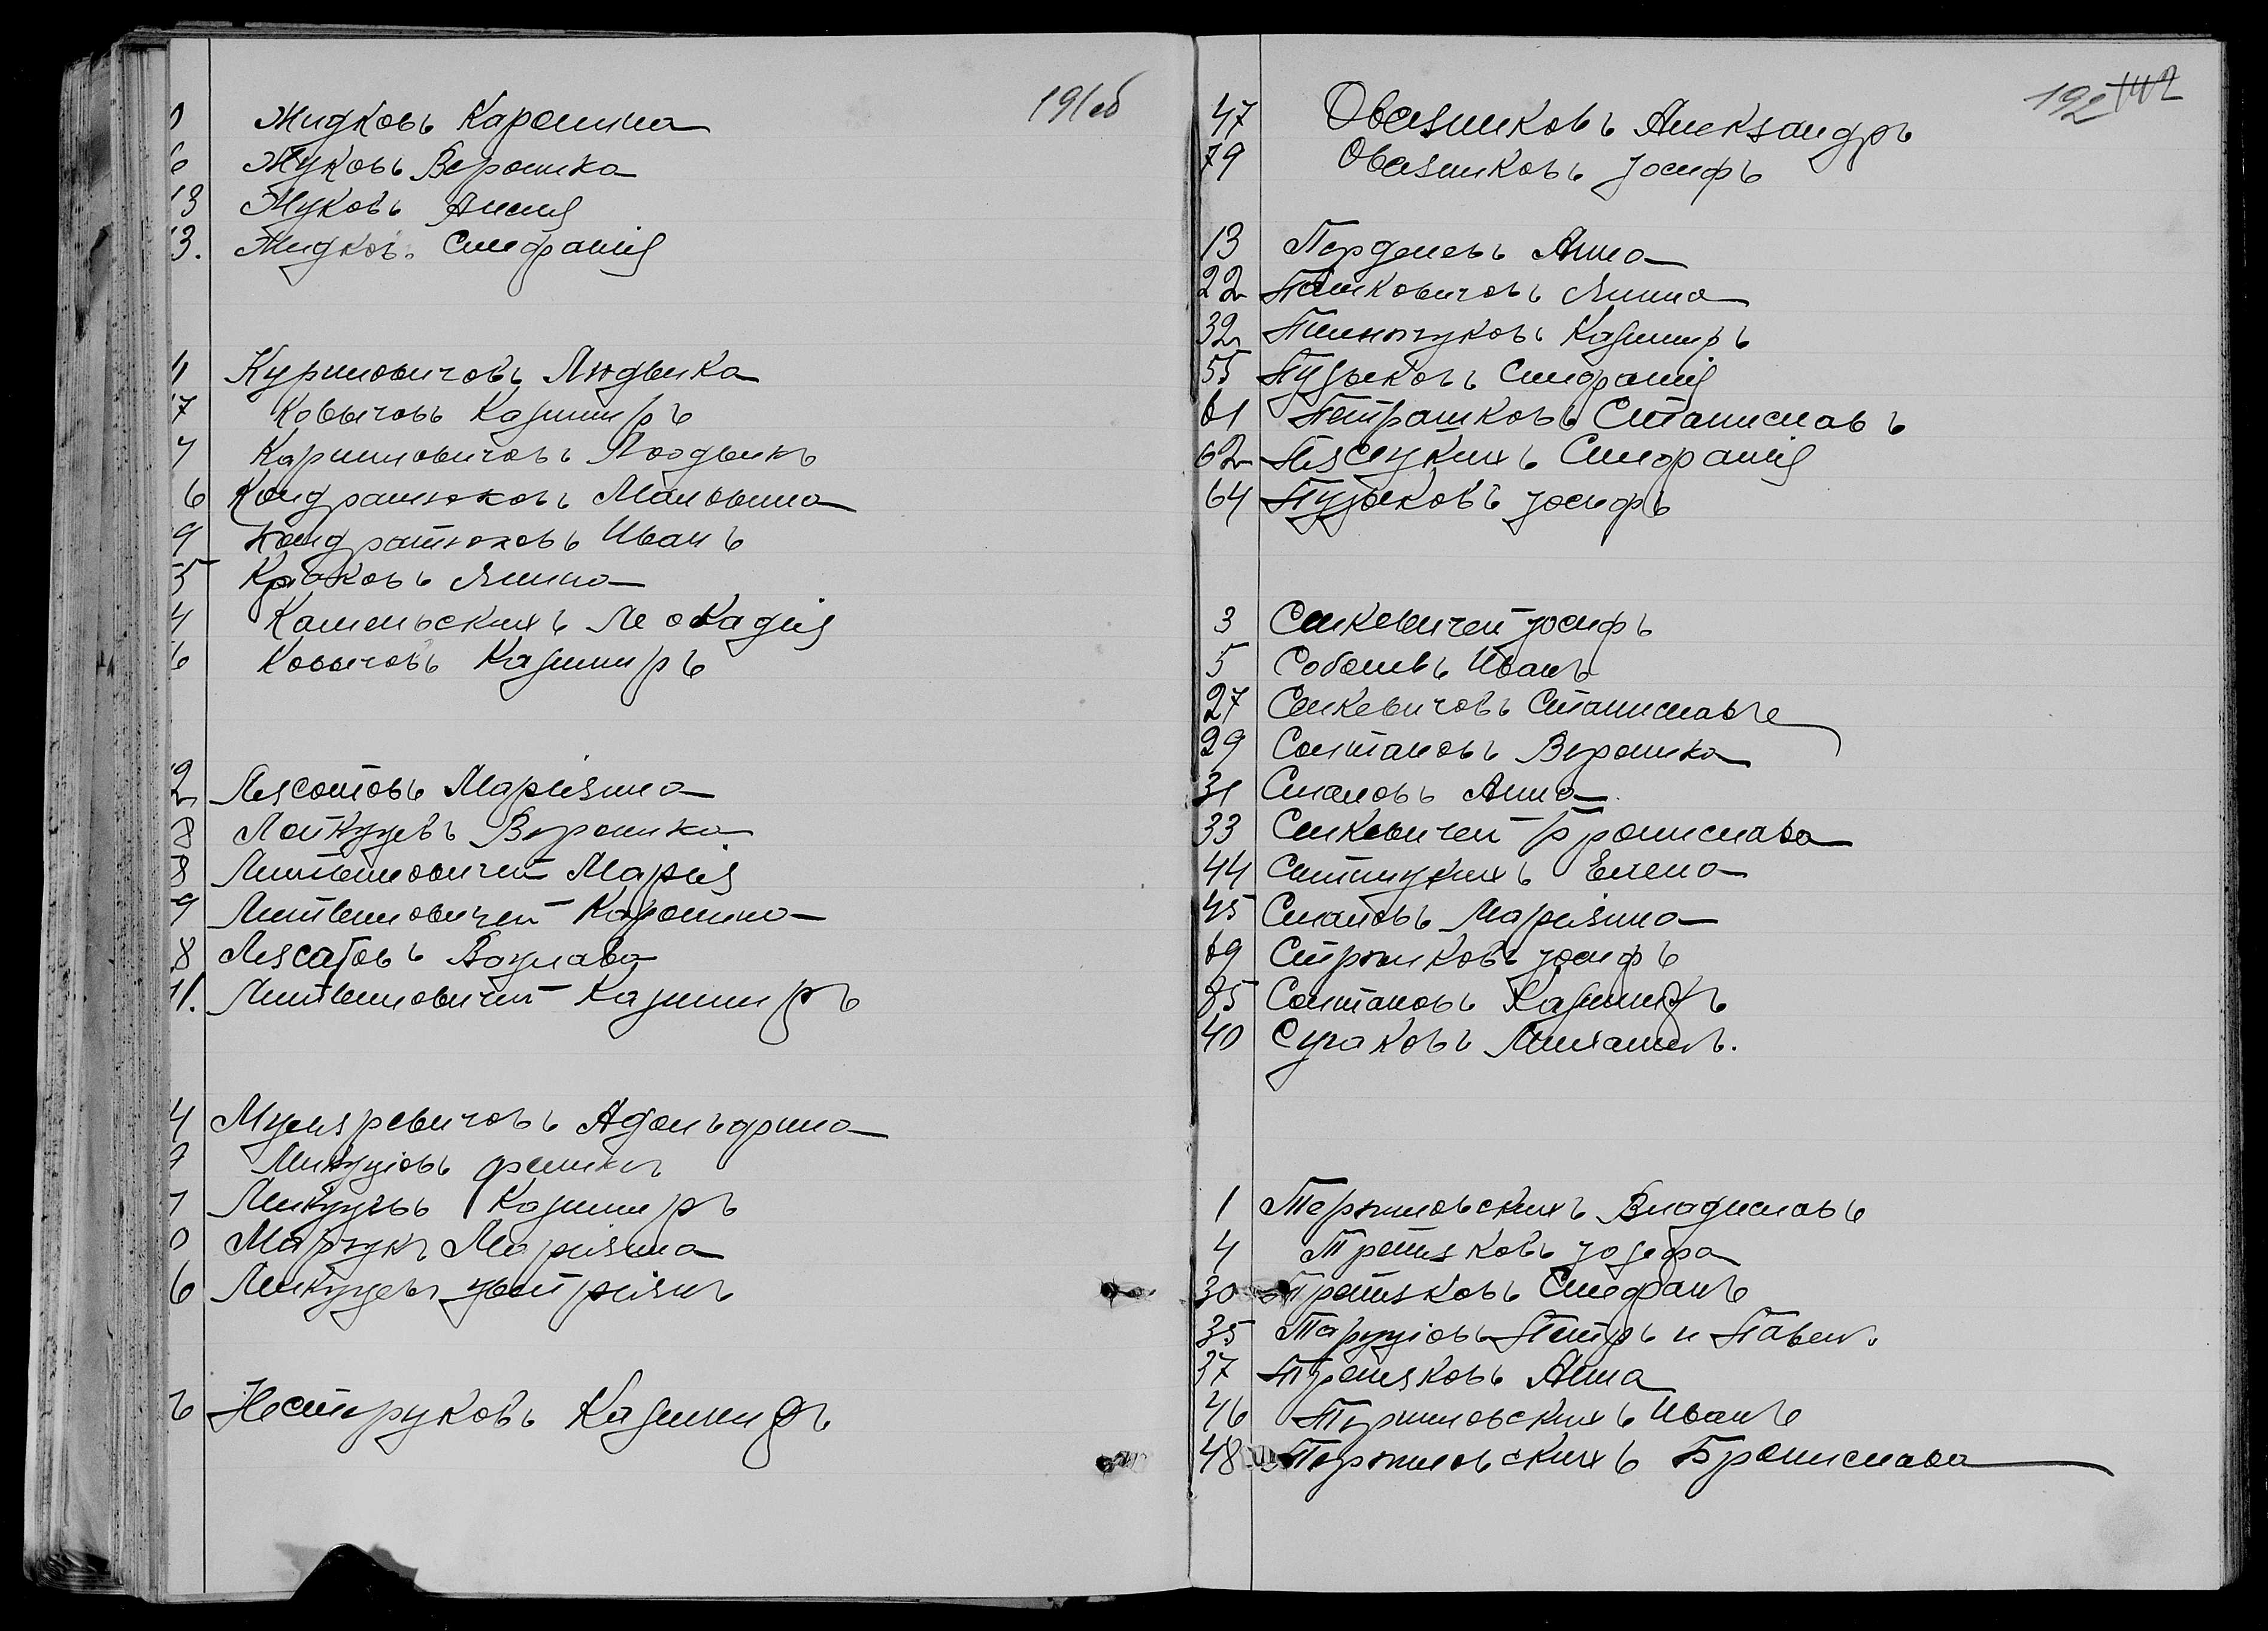 191об
0 Жидковъ Каролина
6 Жуковъ Вероника
13 Жуковъ
13. Жидковъ Стефанія
11 Куриловичовъ Людвика
17 Ковычовъ Казимиръ
4 Кариловичовъ Людвикъ
6 Кондратюковъ Мальвина
9 Кондратюковъ Иванъ
5 Янина
4 Каменьскихъ Леокадія
6 Ковычовъ Казимиръ
2 Лясотовъ Маріянна
8 Лойкуцевъ Вероника
8 Литвиновичей Марія
9 Литвиновичей Каролина
8 Лясатовъ Вацлава
11. Литвиновичей Казимиръ
4 Муляревичовъ Адольфина
7 Микуціовъ
1 Микуцевъ Казимиръ
0 Марчукъ Маріянна
6 Микуцевъ
6 Нестеруковъ Казимиръ
192 142
47 Овязниковъ Александръ
79 Овязниковъ Іосифъ
13 Перделевъ Анна
22 Пашковичовъ Янина
32 Казимиръ
55 Пузыковъ Стефанія
61 Петрашковъ Станиславъ
62 Пясецкихъ Стефанія
64 Пузыковъ Іосифъ
3 Сенкевичей Іосифъ
5 Соболевъ Иванъ
27 Сенкевичовъ Станиславъ
29 Солтановъ Вероника
31 Анна
33 Сенкевичей Бронислава
44 Ситницкихъ Елена
45 Маріянна
69 Стрыжковъ Іосифъ
85 Солтановъ Казимиръ
40 Сучковъ Михаилъ.
1 Терпиловскихъ Владиславъ
4 Третяковъ Іозефа
30 Третяковъ Стефанъ
35 Таруціовъ Петръ и Павелъ
37 Третяковъ Анна
46 Терпиловскихъ Иванъ
48 Терпиловскихъ Бронислава